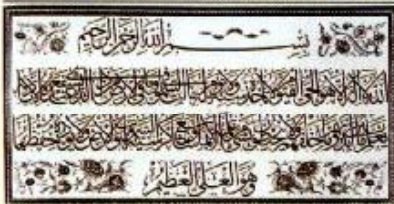 بسم الله الرحمن الرحيم
الله لا إله إلا هو الحي القيوم لا تأخذه سنة ولا نوم له ما في السموات وما في الأرض من ذا الذي يشفع عنده إلا بإذنه
يعلم ما بين أيديهم وما خلفهم ولا يحيطون بشيء من علمه إلا بما شاء وسع كرسيه السموات والأرض ولا يؤوده حفظهما
وهو العلي العظيم